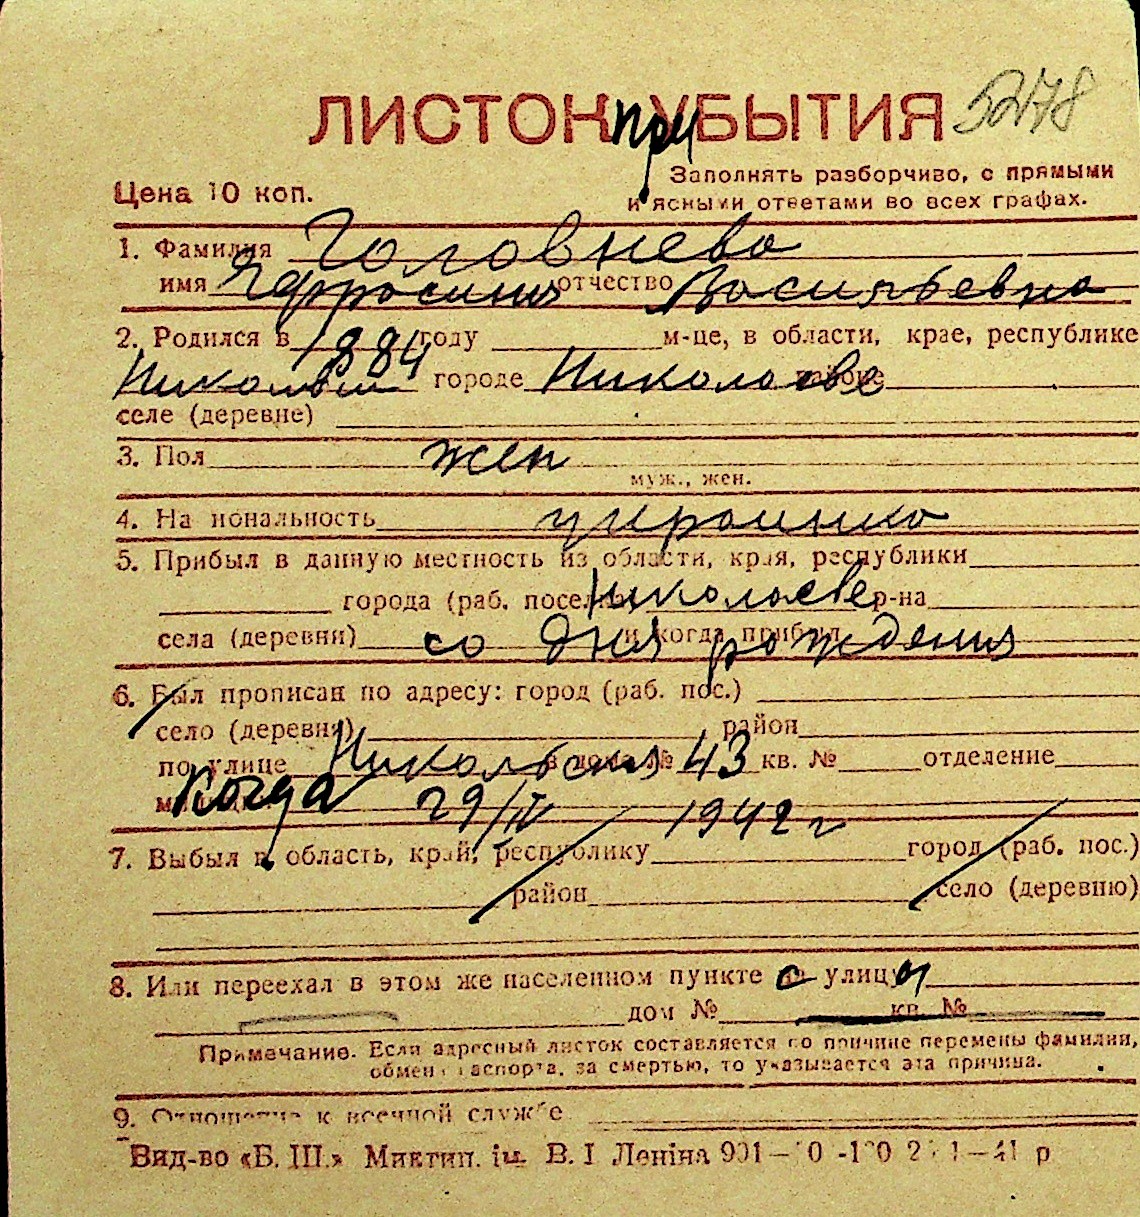 ЛИСТОК при УБЫТИЯ 5278
Цена 10 коп.
Заполнять разборчиво, с прямыми
и ясными ответами во всех графах.
1. Фамилия Головнева
имя Ефросиния отчество Васильевна
2. Родился в 1884 году м-це, в области, крае, республике
городе Николаеве районе
селе (деревне)
3. Пол жен
муж., жен.
4. Национальность украинка
5. Прибыл в данную местность из области, края, республики
города (раб. поселка) Николаеве р-на
села (деревни) и когда прибыл со дня рождения
6. Был прописан по адресу: город (раб. пос.)
село (деревня) район
по улице Никольская в доме № 43 кв. № отделение
Когда 29/IV 1942 г
7. Выбыл в область, край, республику город (раб. пос.)
район село (деревню)
8. Или переехал в этом же населенном пункте с улицы
дом № кв. №
Примечание. Если адресный листок составляется по причине перемены фамилии,
обмена паспорта, за смертью, то указывается эта причина.
9. Отношение к военной службе
Вид-во «Б. Ш.» Миктип. ім. В. І Леніна